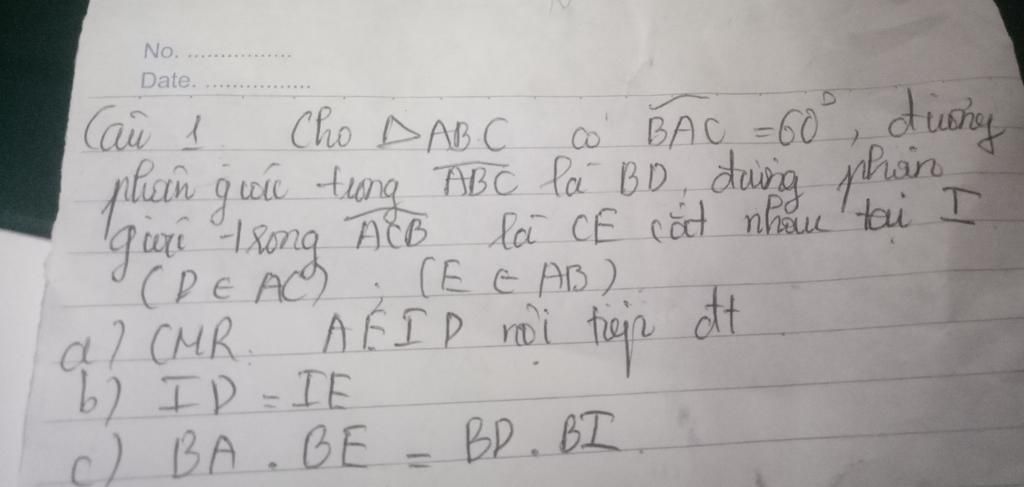 No. ................
Date. ................
Câu 1 Cho ΔABC có BAC = 60°, đường
phân giác trong ABC là BD, đường phân
giác trong ACB là CE cắt nhau tại I
(D ∈ AC) ; (E ∈ AB)
a) CMR. AEID nội tiếp đt
b) ID = IE
c) BA . BE = BD . BI